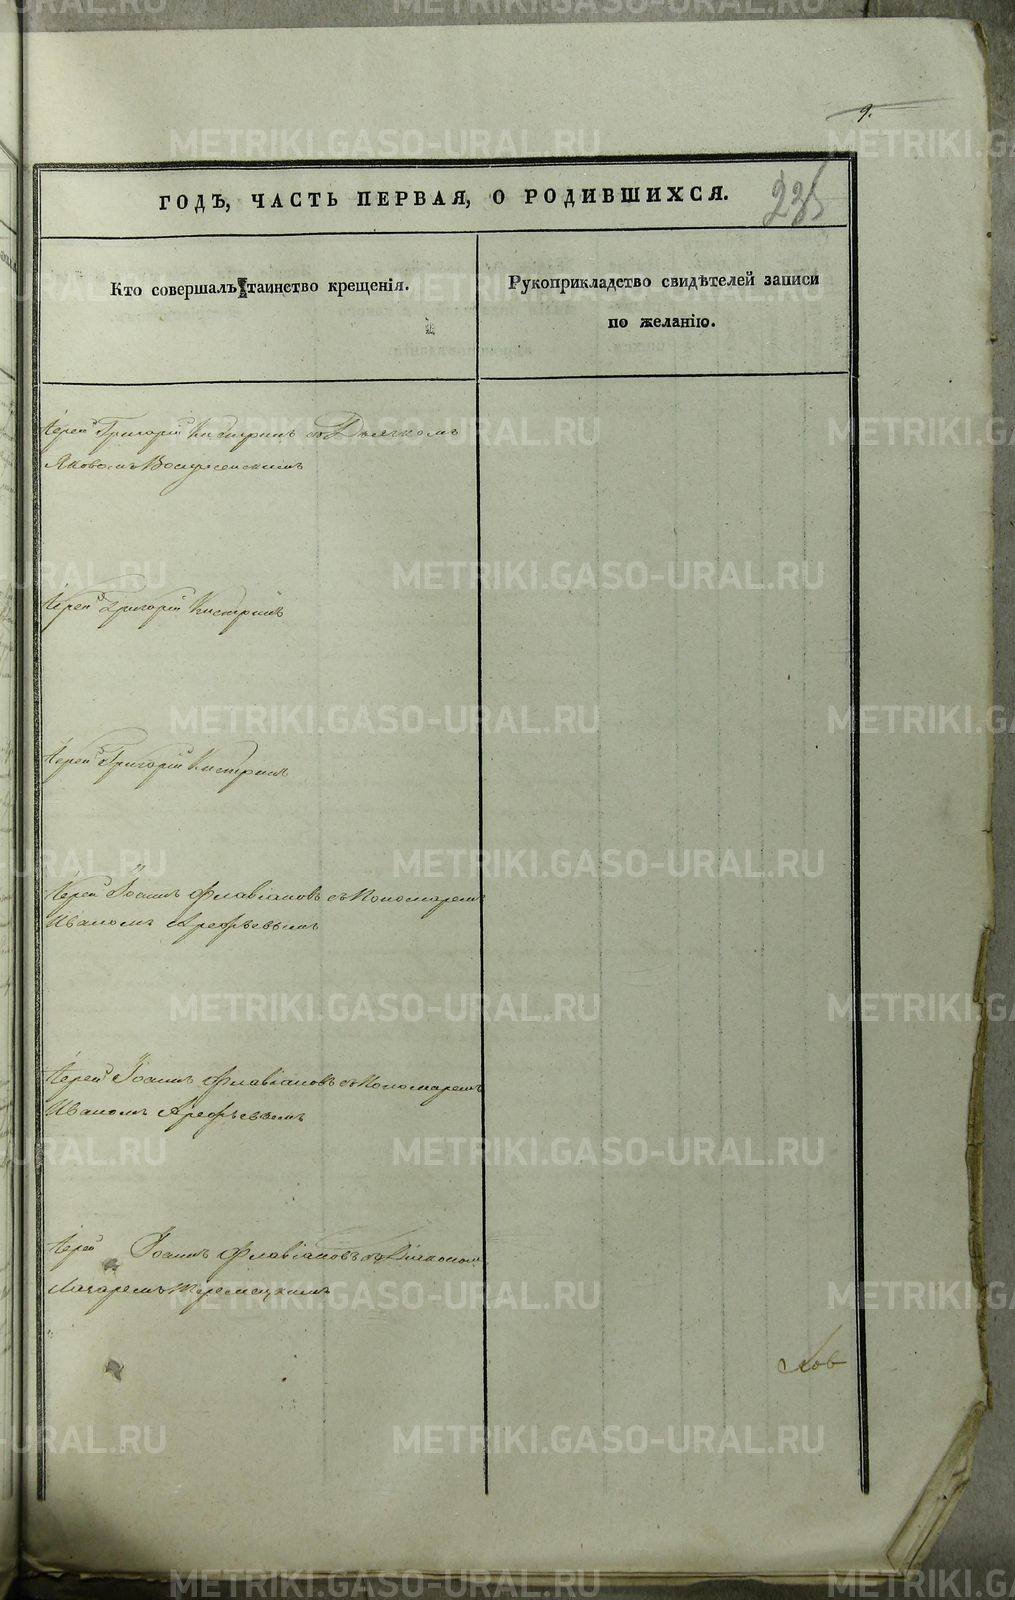 9.
235
ГОДЪ, ЧАСТЬ ПЕРВАЯ, О РОДИВШИХСЯ.
Кто совершалъ таинство крещенія.
Рукоприкладство свидѣтелей записи
по желанію.
Іерей Григорій Кистринъ съ Дьячкомъ
Яковомъ Воскресенскимъ
Іерей Григорій Кистринъ
Іерей Григорій Кистринъ
Іерей Іоаннъ Флавіановъ съ Пономаремъ
Иваномъ Арефьевымъ
Іерей Іоаннъ Флавіановъ съ Пономаремъ
Иваномъ Арефьевымъ
Іерей Іоаннъ Флавіановъ съ Діакономъ
Лазаремъ
METRIKI.GASO-URAL.RU